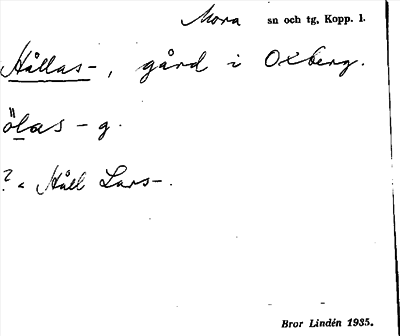 Mora sn och tg, Kopp. l.
Hållas-, gård i Oxberg.
ölas - g.
? < Håll Lars-.
Bror Lindén 1935.